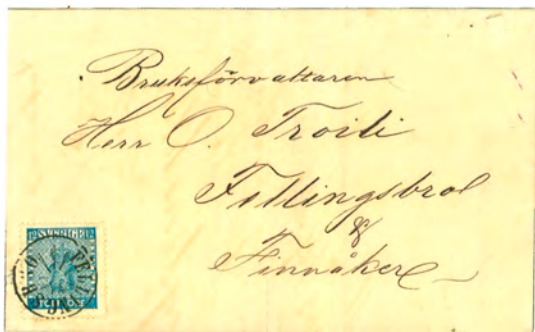 Bruksförvaltaren
Herr O. Troili
Fellingsbro
&
Finnåker